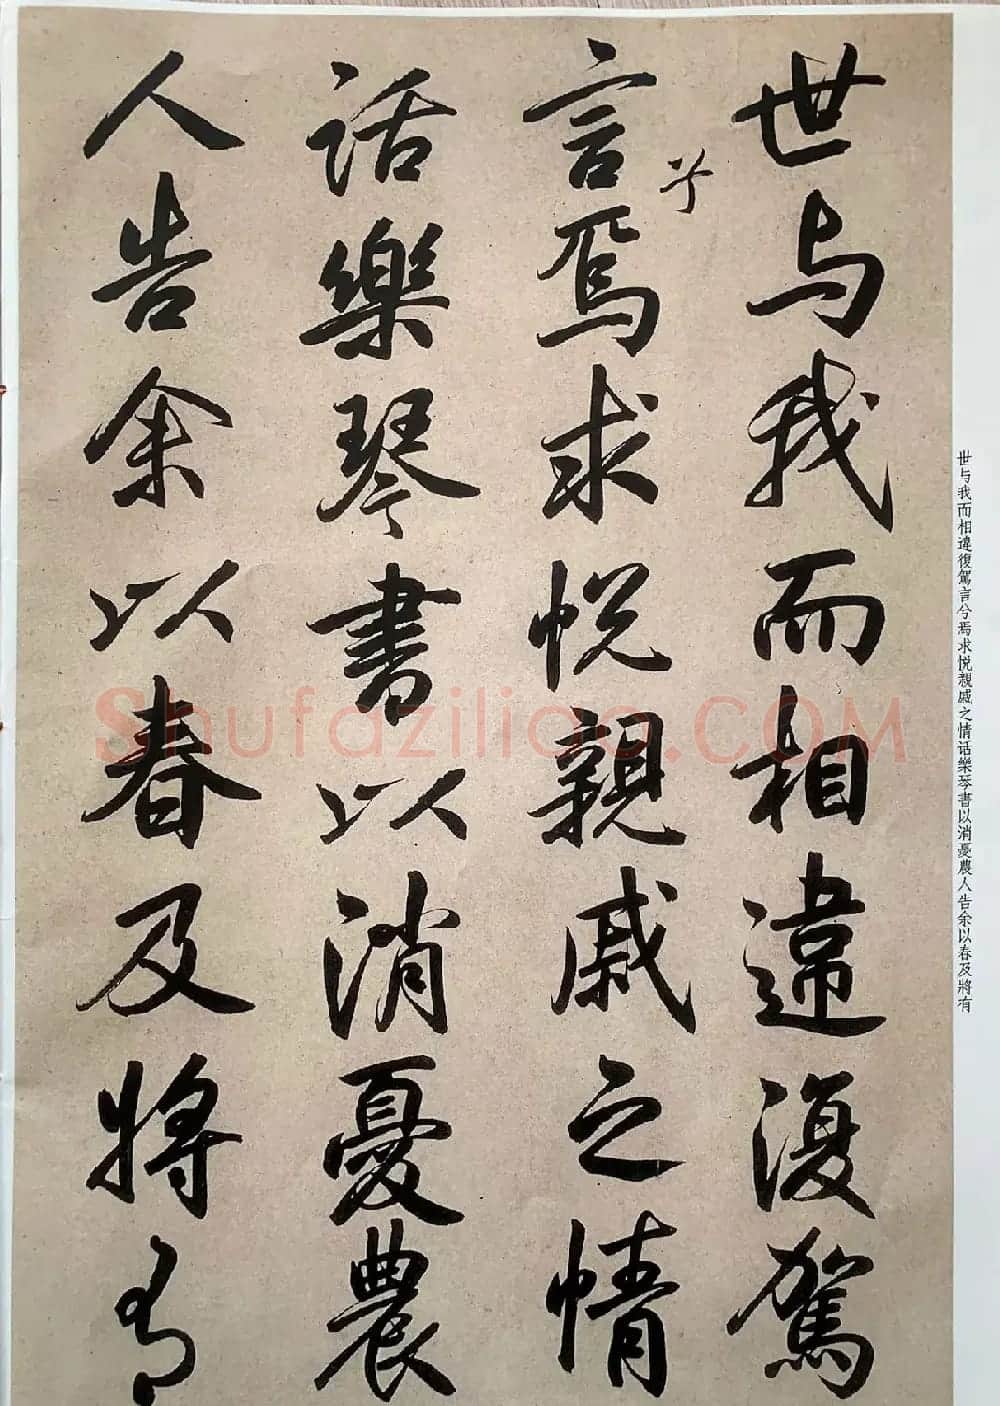 世与我而相違復駕
言兮焉求悅親戚之情
話樂琴書以消憂農
人告余以春及將有
世与我而相違復駕言兮焉求悅親戚之情话樂琴書以消憂農人告余以春及將有
Shufaziliao.COM